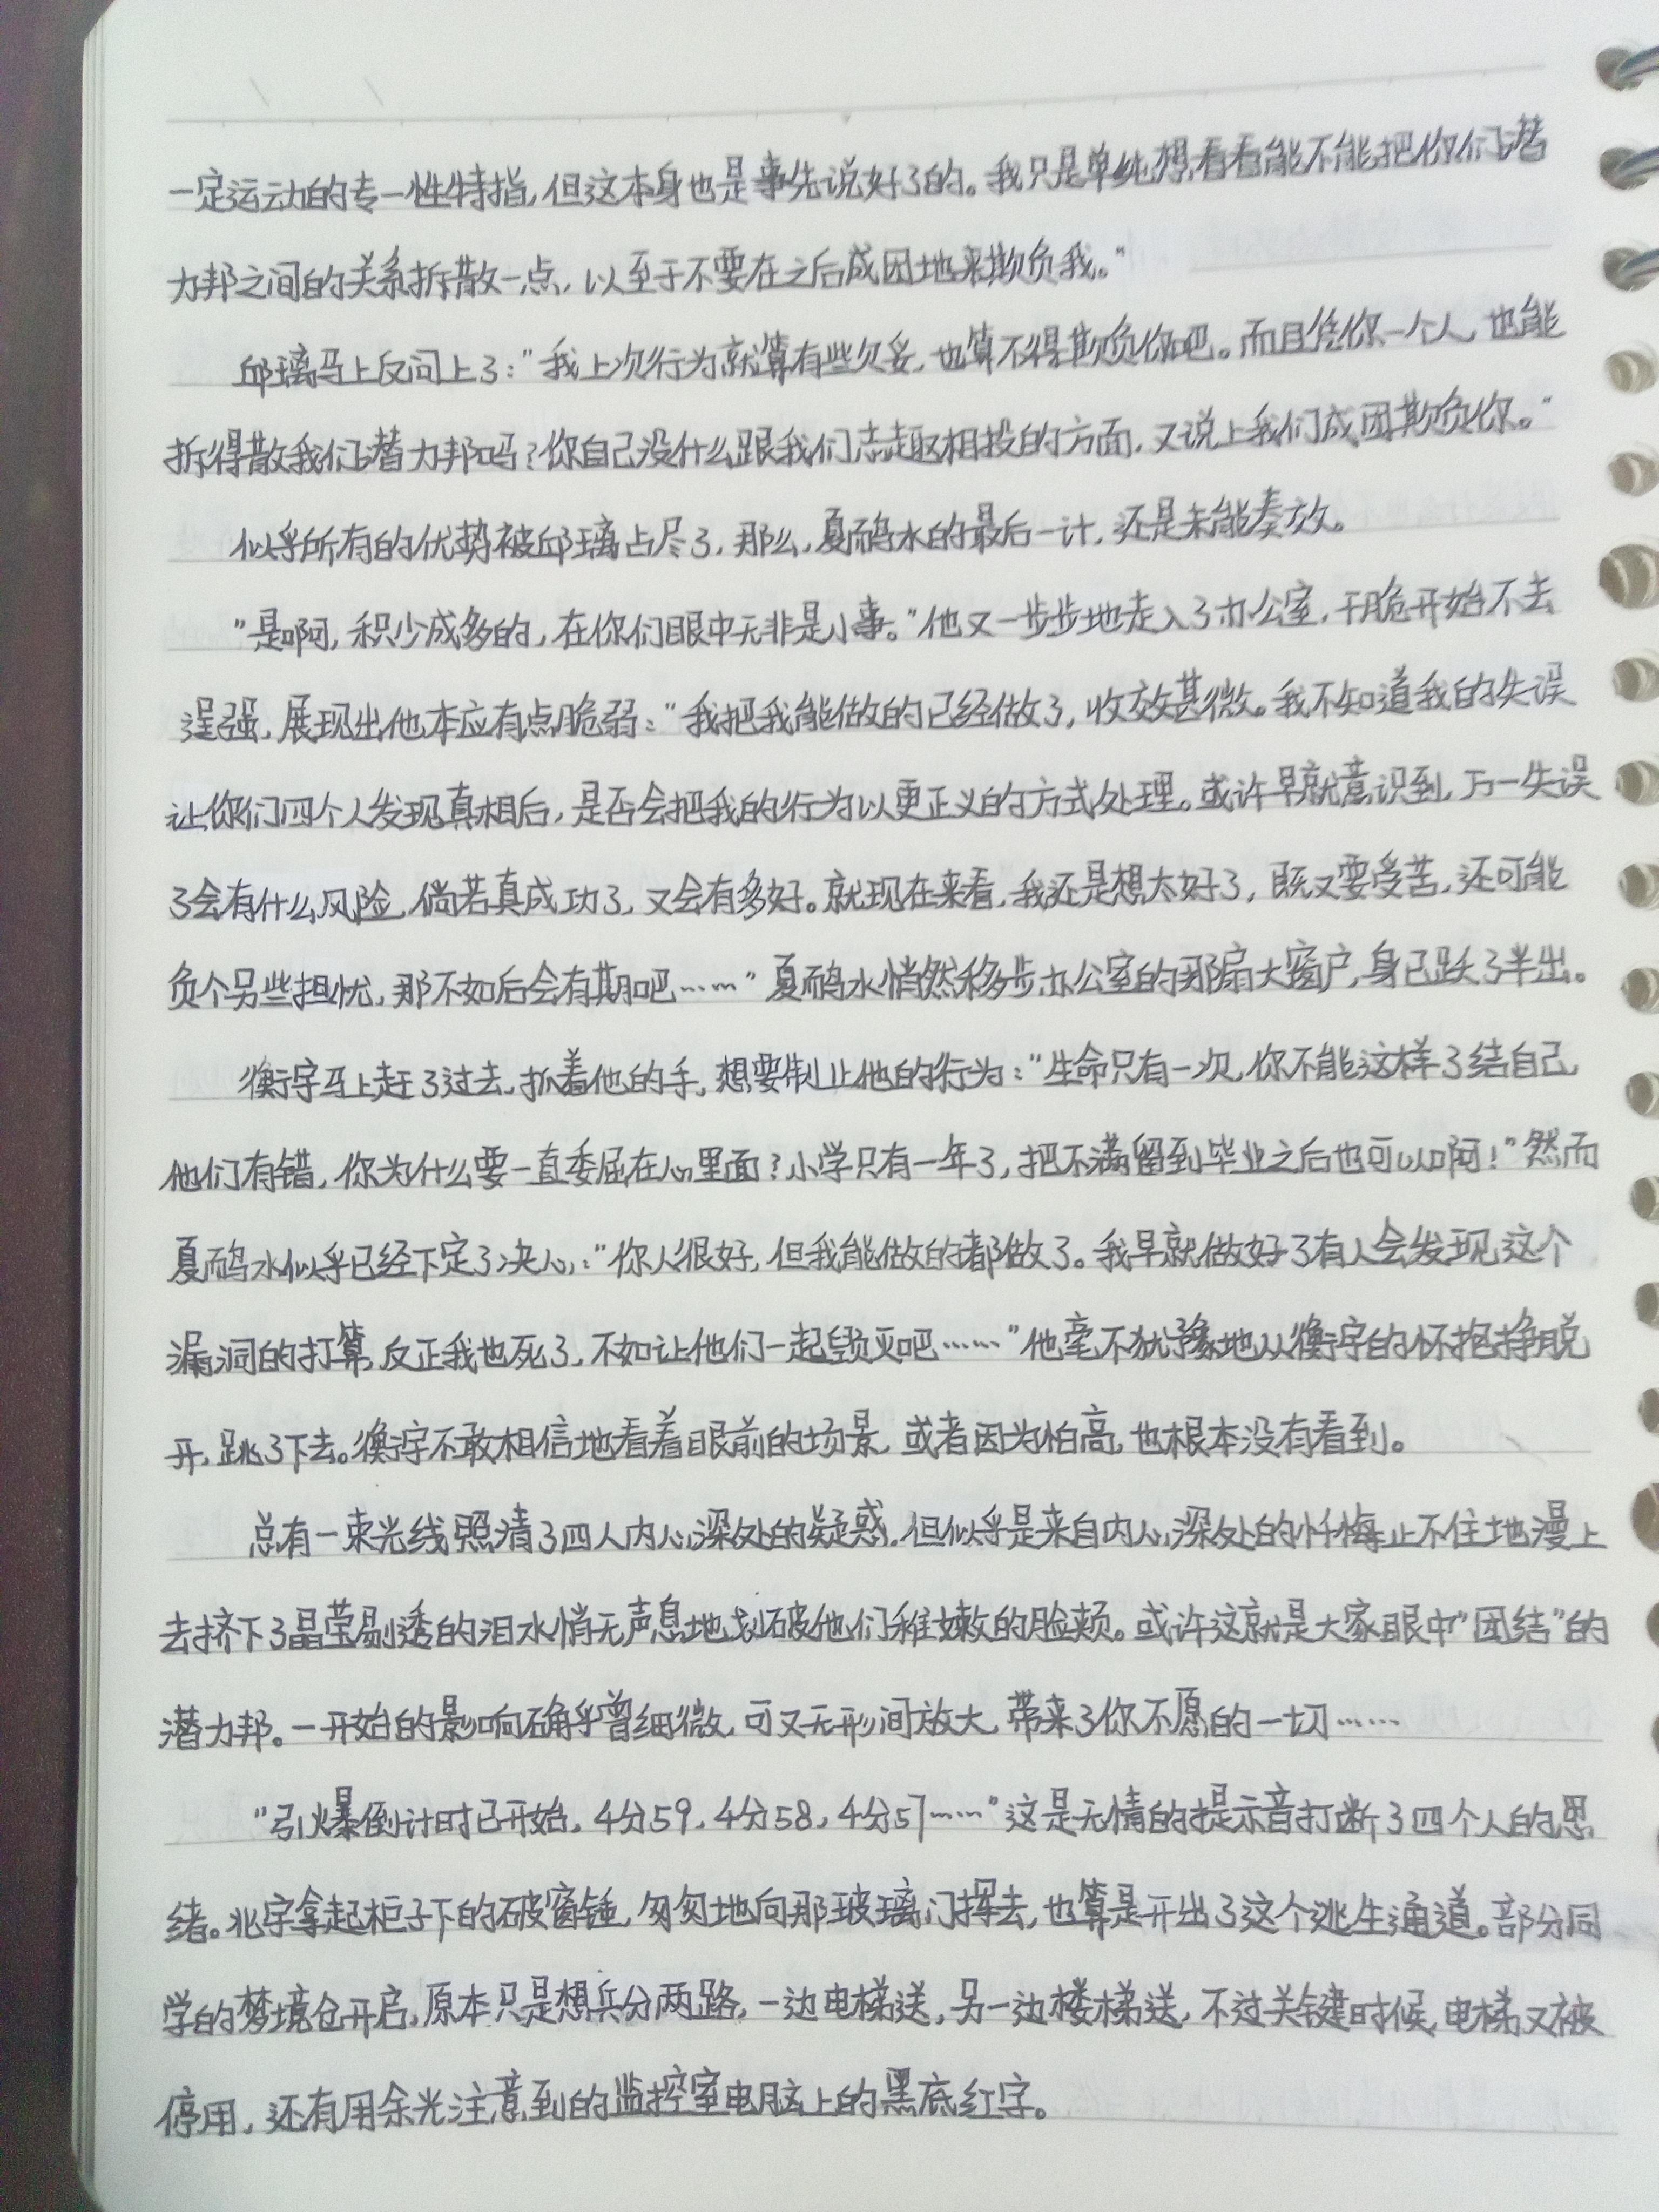 一定运动的专一性特指，但这本身也是事先说好了的。我只是单纯想看看能不能把你们潜
力邦之间的关系拆散一点，以至于不要在之后成团地来欺负我。"
邱璃马上反问上了："我上次行为就算有些欠妥，也算不得欺负你吧。而且凭你一个人，也能
拆得散我们潜力邦吗？你自己没什么跟我们志趣相投的方面，又说上我们成团欺负你。"
似乎所有的优势被邱璃占尽了，那么，夏鸸水的最后一计，还是未能奏效。
"是啊，积少成多的，在你们眼中无非是小事。"他又一步步地走入了办公室，干脆开始不去
逞强，展现出他本应有点脆弱："我把我能做的已经做了，收效甚微。我不知道我的失误
让你们四个人发现真相后，是否会把我的行为以更正义的方式处理。或许早就意识到，万一失误
了会有什么风险，倘若真成功了，又会有多好。就现在来看，我还是想太好了，既又要受苦，还可能
负个另些担忧，那不如后会有期吧……"夏鸸水悄然移步办公室的那扇大窗户，身已跃了半出。
衡宇马上赶了过去，抓着他的手，想要制止他的行为："生命只有一次，你不能这样了结自己，
他们有错，你为什么要一直委屈在心里面？小学只有一年了，把不满留到毕业之后也可以啊！"然而
夏鸸水似乎已经下定了决心："你人很好，但我能做的都做了。我早就做好了有人会发现这个
漏洞的打算，反正我也死了，不如让他们一起毁灭吧……"他毫不犹豫地从衡宇的怀抱挣脱
开，跳了下去。衡宇不敢相信地看着眼前的场景，或者因为怕高，也根本没有看到。
总有一束光线照清了四人内心深处的疑惑，但似乎是来自内心深处的忏悔止不住地漫上
去挤下了晶莹剔透的泪水悄无声息地划破他们稚嫩的脸颊。或许这就是大家眼中"团结"的
潜力邦。一开始的影响确乎曾细微，可又无形间放大，带来了你不愿的一切……
"引爆倒计时已开始，4分59，4分58，4分57……"这是无情的提示音打断了四个人的思
绪。兆宇拿起柜子下的破窗锤，匆匆地向那玻璃门挥去，也算是开出了这个逃生通道。部分同
学的梦境仓开启，原本只是想兵分两路，一边电梯送，另一边楼梯送，不过关键时候，电梯又被
停用，还有用余光注意到的监控室电脑上的黑底红字。